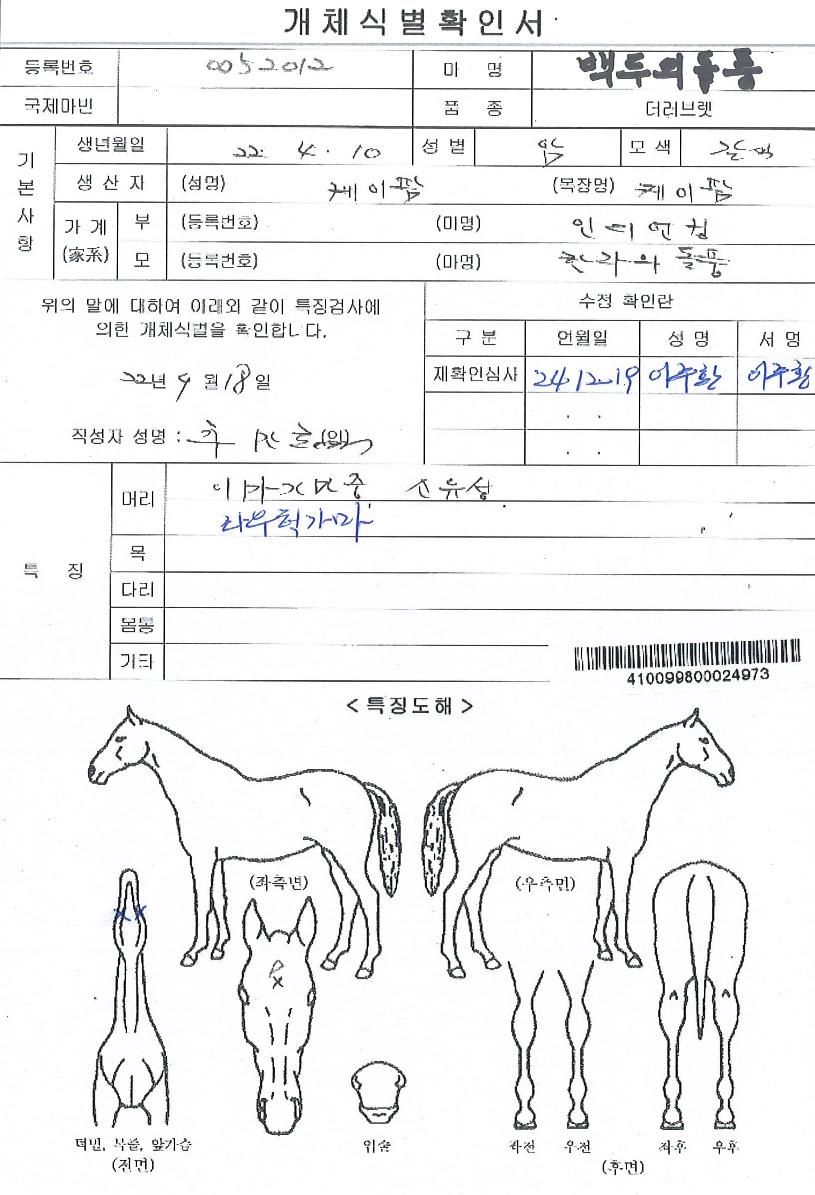 개체식별확인서
등록번호 0052012 마 명 백두의돌풍
국제마빈 품 종 더러브렛
기본사항
생년월일 22. 4. 10 성별 암 모색 갈색
생산자 (성명) 케이팜 (목장명) 케이팜
가계(家系) 부 (등록번호) (마명) 인디언킹
모 (등록번호) (마명) 한라의돌풍
위의 말에 대하여 아래와 같이 특징검사에
의한 개체식별을 확인합니다.
22년 9월 18일
작성자 성명 : (인)
수정 확인란
구 분 언월일 성 명 서 명
재확인심사 24.12.19 이주환 이주환
특 징
머리 소유성
좌우혁가마
목
다리
몸통
기타
410099800024973
<특징도해>
(좌측면) (우측면)
턱밑, 목줄, 앞가슴
(전면)
위술
좌전 우전 좌후 우후
(후면)